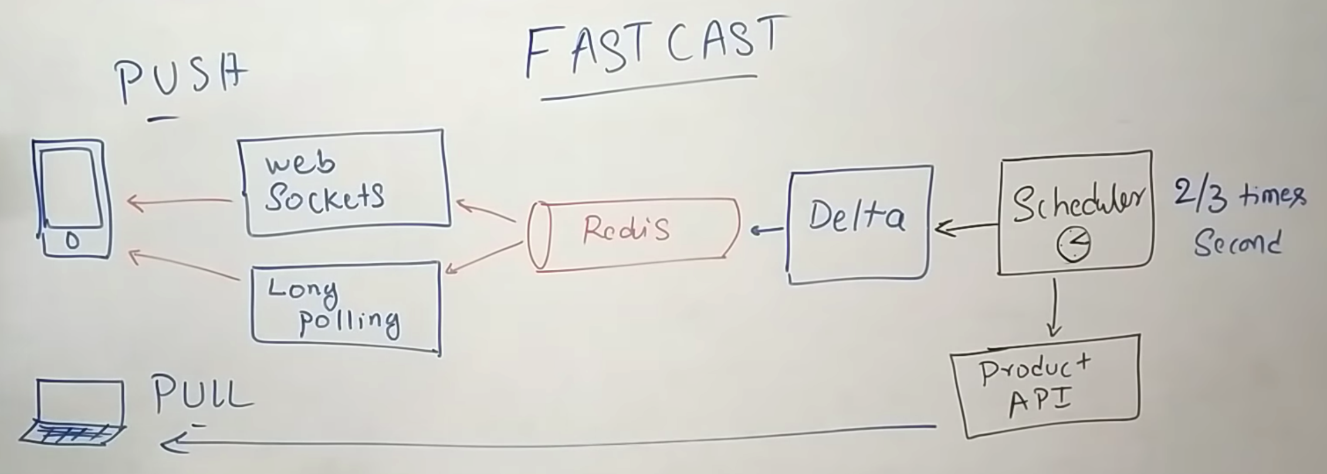 FASTCAST
PUSH
web
Sockets
Long
polling
Redis
Delta
Scheduler
2/3 times
Second
Product
API
PULL